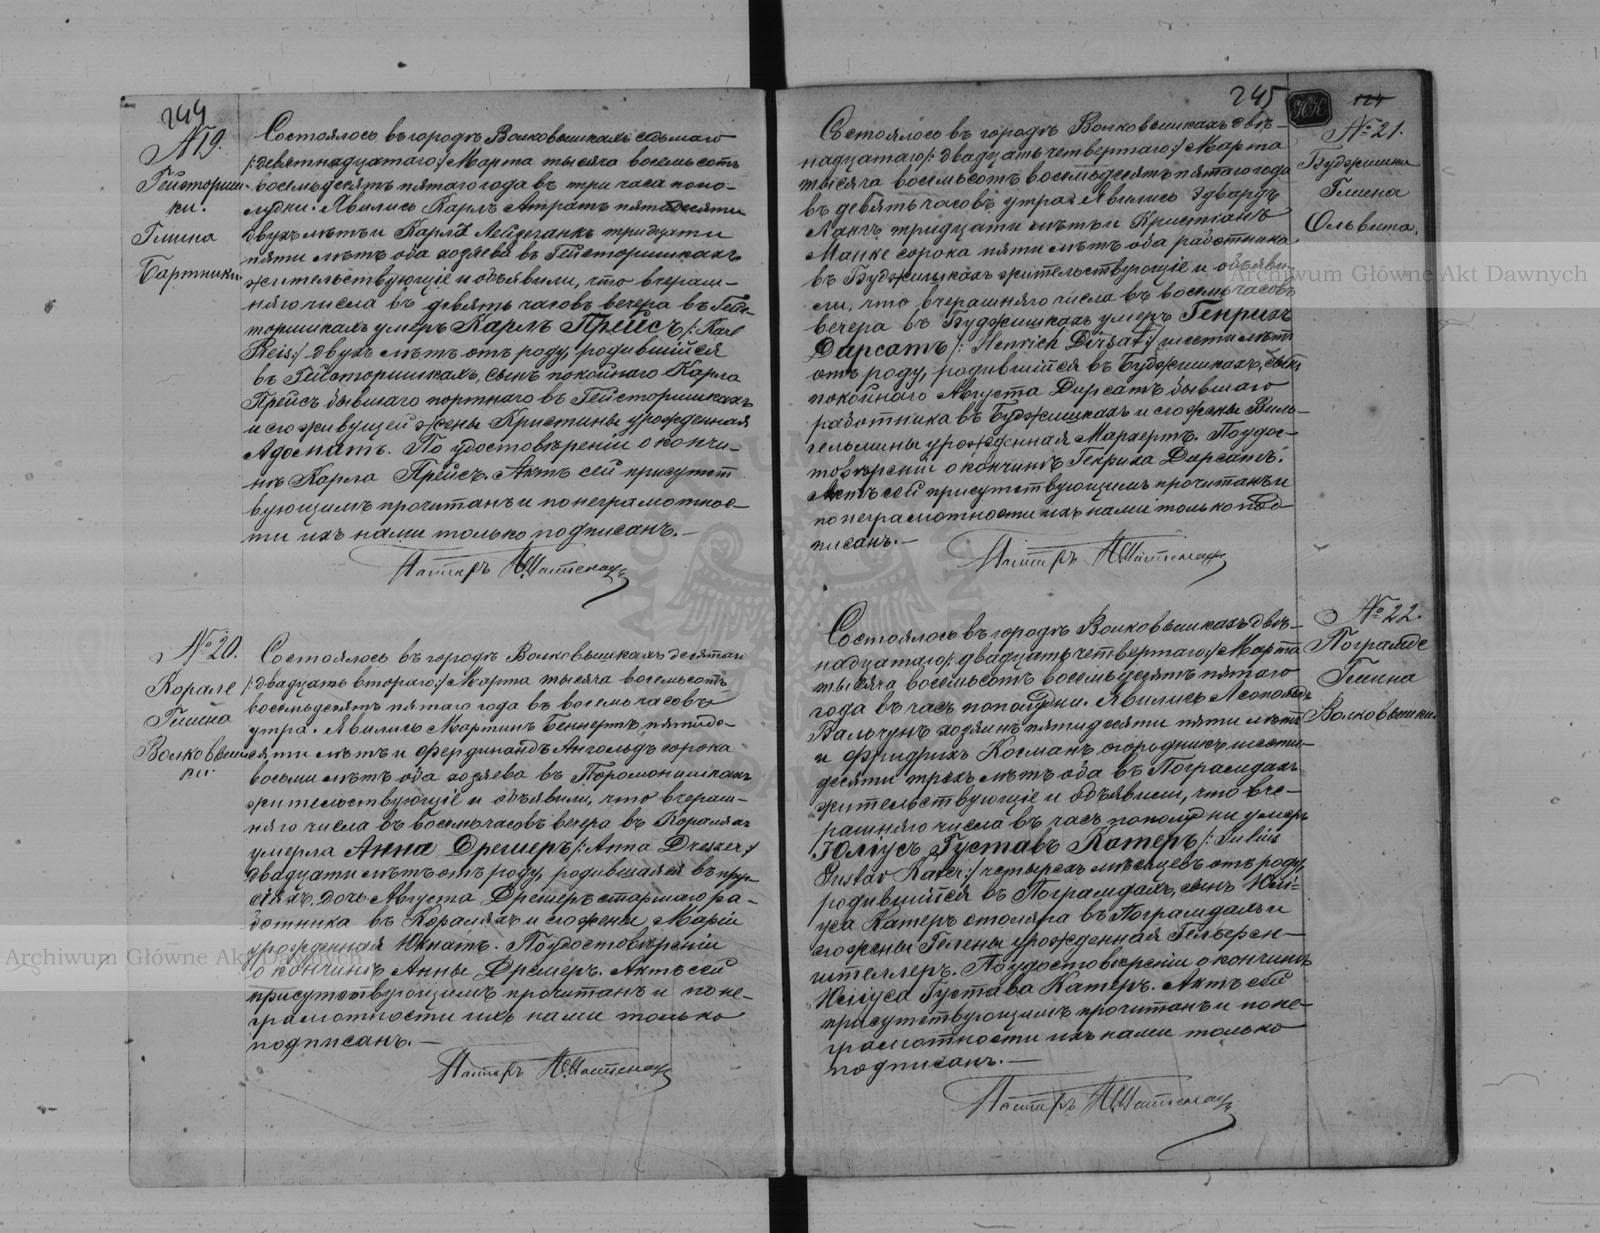 244
№19.
Гейсториш-
ки.
Гмина
Бартники
Состоялось въ городѣ Волковышкахъ седьмаго
/:девятнадцатаго:/ Марта тысяча восемьсотъ
восемьдесятъ пятаго года въ три часа попо-
лудни. Явились Карлъ Атратъ пятидесяти
двухъ лѣтъ и Карлъ тридцати
пяти лѣтъ оба хозяева въ Гейсторишкахъ
жительствующіе и объявили, что вчераш-
няго числа въ девять часовъ вечера въ Гейс-
торишкахъ умеръ Карлъ Прейсъ /: Karl
Preis:/ двухъ лѣтъ отъ роду, родившійся
въ Гейсторишкахъ, сынъ покойнаго Карла
Прейсъ бывшаго портнаго въ Гейсторишкахъ
и его живущей жены Кристины урожденная
Адоматъ. По удостовѣреніи о кончи-
нѣ Карла Прейсъ. Актъ сей присутст
вующимъ прочитанъ и по неграмотнос-
ти ихъ нами только подписанъ.—
Пасторъ
№20.
Корале
Гмина
Волковыш
ки
Состоялось въ городѣ Волковышкахъ десятаго
/:двадцать втораго:/ Марта тысяча восемьсотъ
восемьдесятъ пятаго года въ восемь часовъ
утра. Явились Мартинъ Беннертъ пятиде-
сяти лѣтъ и Фердинандъ Ангольдъ сорока
восьми лѣтъ оба хозяева въ
жительствующіе и объявили, что вчераш-
няго числа въ восемь часовъ вечера въ Кораляхъ
умерла Анна Дрешеръ /: Anna Drescher:/
двадцати лѣтъ отъ роду, родившаяся въ Прус-
сіяхъ, дочь Августа Дрешеръ старшаго ра-
ботника въ Кораляхъ и его жены Маріи
урожденная Юкнатъ. По удостовѣреніи
о кончинѣ Анны Дрешеръ. Актъ сей
присутствующимъ прочитанъ и по не-
грамотности ихъ нами только
подписанъ.—
Пасторъ
245
№21.
Будзишки
Гмина
Ольвита.
Состоялось въ городѣ Волковышкахъ двѣ-
надцатаго /: двадцать четвертаго:/ Марта
тысяча восемьсотъ восемьдесятъ пятаго года
въ девять часовъ утра. Явились Эдвардъ
Лангъ тридцати лѣтъ и Кристіанъ
Манке сорока пяти лѣтъ оба работника
въ Будзишкахъ жительствующіе и объяви-
ли, что вчерашняго числа въ восемь часовъ
вечера въ Будзишкахъ умеръ Генрихъ
Дирсатъ /: Henrich Dirsat:/ шести лѣтъ
отъ роду, родившійся въ Будзишкахъ, сынъ
покойнаго Августа Дирсатъ бывшаго
работника въ Будзишкахъ и его жены Виль-
гельмины урожденная Маркертъ. По удос-
товѣреніи о кончинѣ Генриха Дирсатъ.
Актъ сей присутствующимъ прочитанъ и
по неграмотности ихъ нами только под-
писанъ.—
Пасторъ
№22.
Пограмде
Гмина
Волковышки
Состоялось въ городѣ Волковышкахъ двѣ-
надцатаго /: двадцать четвертаго:/ Марта
тысяча восемьсотъ восемьдесятъ пятаго
года въ часъ пополудни. Явились Леопольдъ
Вальчунъ хозяинъ пятидесяти пяти лѣтъ
и Фридрихъ Косманъ огородникъ шести-
десяти трехъ лѣтъ оба въ Пограмдахъ
жительствующіе и объявили, что вче-
рашняго числа въ часъ пополудни умеръ
Юліусъ Густавъ Катеръ /: Julius
Gustav Kater:/ четырехъ мѣсяцевъ отъ роду,
родившійся въ Пограмдахъ, сынъ Юлі-
уса Катеръ столяра въ Пограмдахъ и
его жены Гелены урожденная Гельберен-
штеллеръ. По удостовѣреніи о кончинѣ
Юліуса Густава Катеръ. Актъ сей
присутствующимъ прочитанъ и по не-
грамотности ихъ нами только
подписанъ.—
Пасторъ
Archiwum Główne Akt Dawnych
Archiwum Główne Akt Dawnych